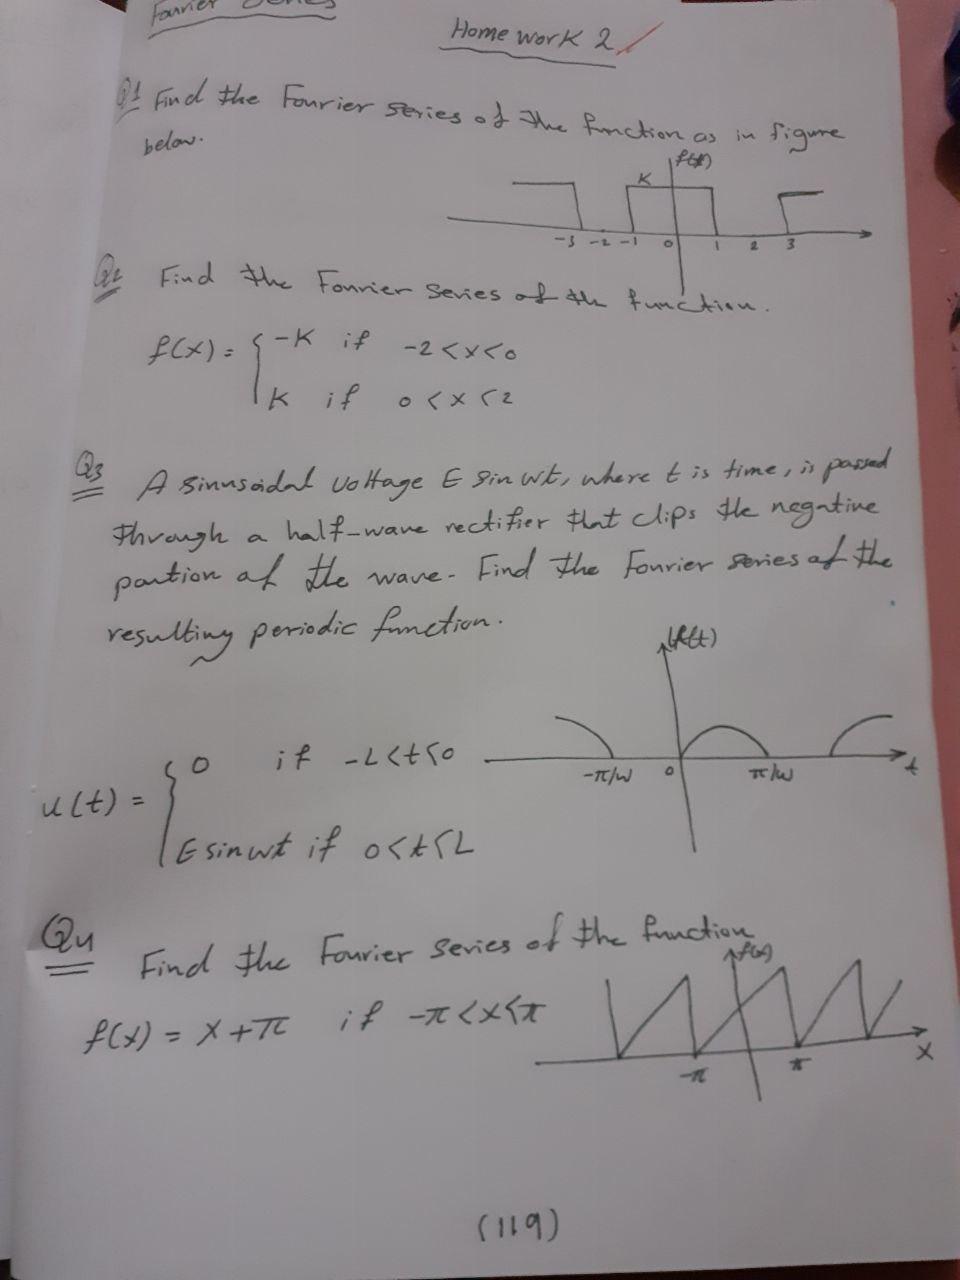 Fourier Series
Home work 2
Q1 Find the Fourier series of the function as in figure
below.
f(x)
K
-3 -2 -1 0 1 2 3
Q2 Find the Fourier series of the function.
f(x) = { -K if -2 < x < 0
K if 0 < x < 2
Q3 A sinusoidal voltage E sin wt, where t is time, is passed
through a half-wave rectifier that clips the negative
portion of the wave- Find the Fourier series of the
resulting periodic function.
-π/w 0 π/w t
u(t) = { 0 if -L<t<0
E sin wt if 0<t<L
Q4 Find the Fourier series of the function
f(x)
f(x) = x+π if -π<x<π
-π π x
(119)